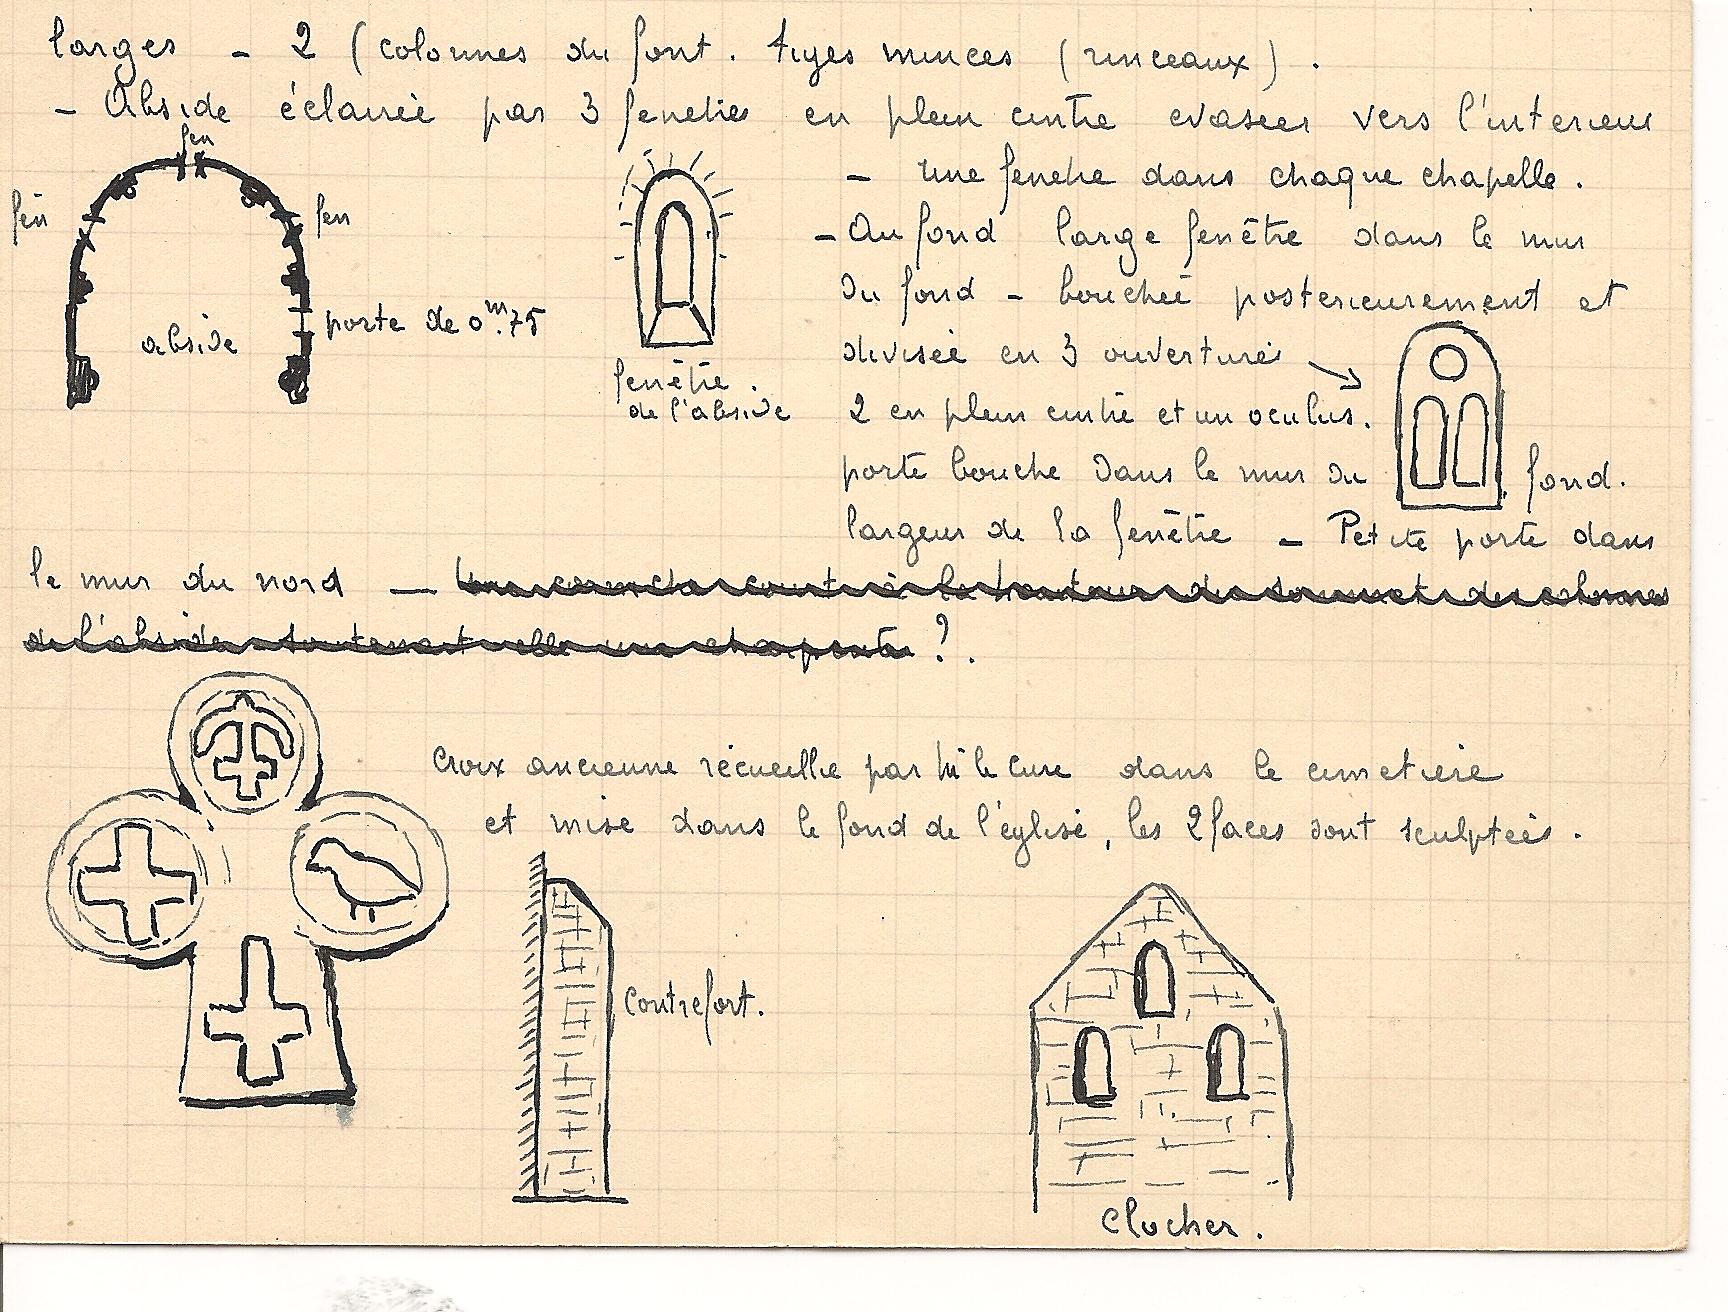 larges - 2 (colonnes du font. tiges minces (rinceaux).
- Abside éclairée par 3 fenetres en plein cintre evasees vers l'interieur
fen
fen
fen
porte de 0m.75
abside
fenêtre.
de l'abside
- une fenetre dans chaque chapelle.
- Au fond large fenêtre dans le mur
du fond - bouchée posterieurement et
divisée en 3 ouvertures
2 en plein cintre et un oculus.
porte bouche dans le mur du fond.
largeur de la fenêtre - Petite porte dans
le mur du nord — Une corniche court à la hauteur du sommet des colonnes
de l'abside soutenait elle une charpente ?.
Croix ancienne récueillie par Mr le Cure dans le cimetière
et mise dans le fond de l'église, les 2 faces sont sculptées.
Contrefort.
Clocher.